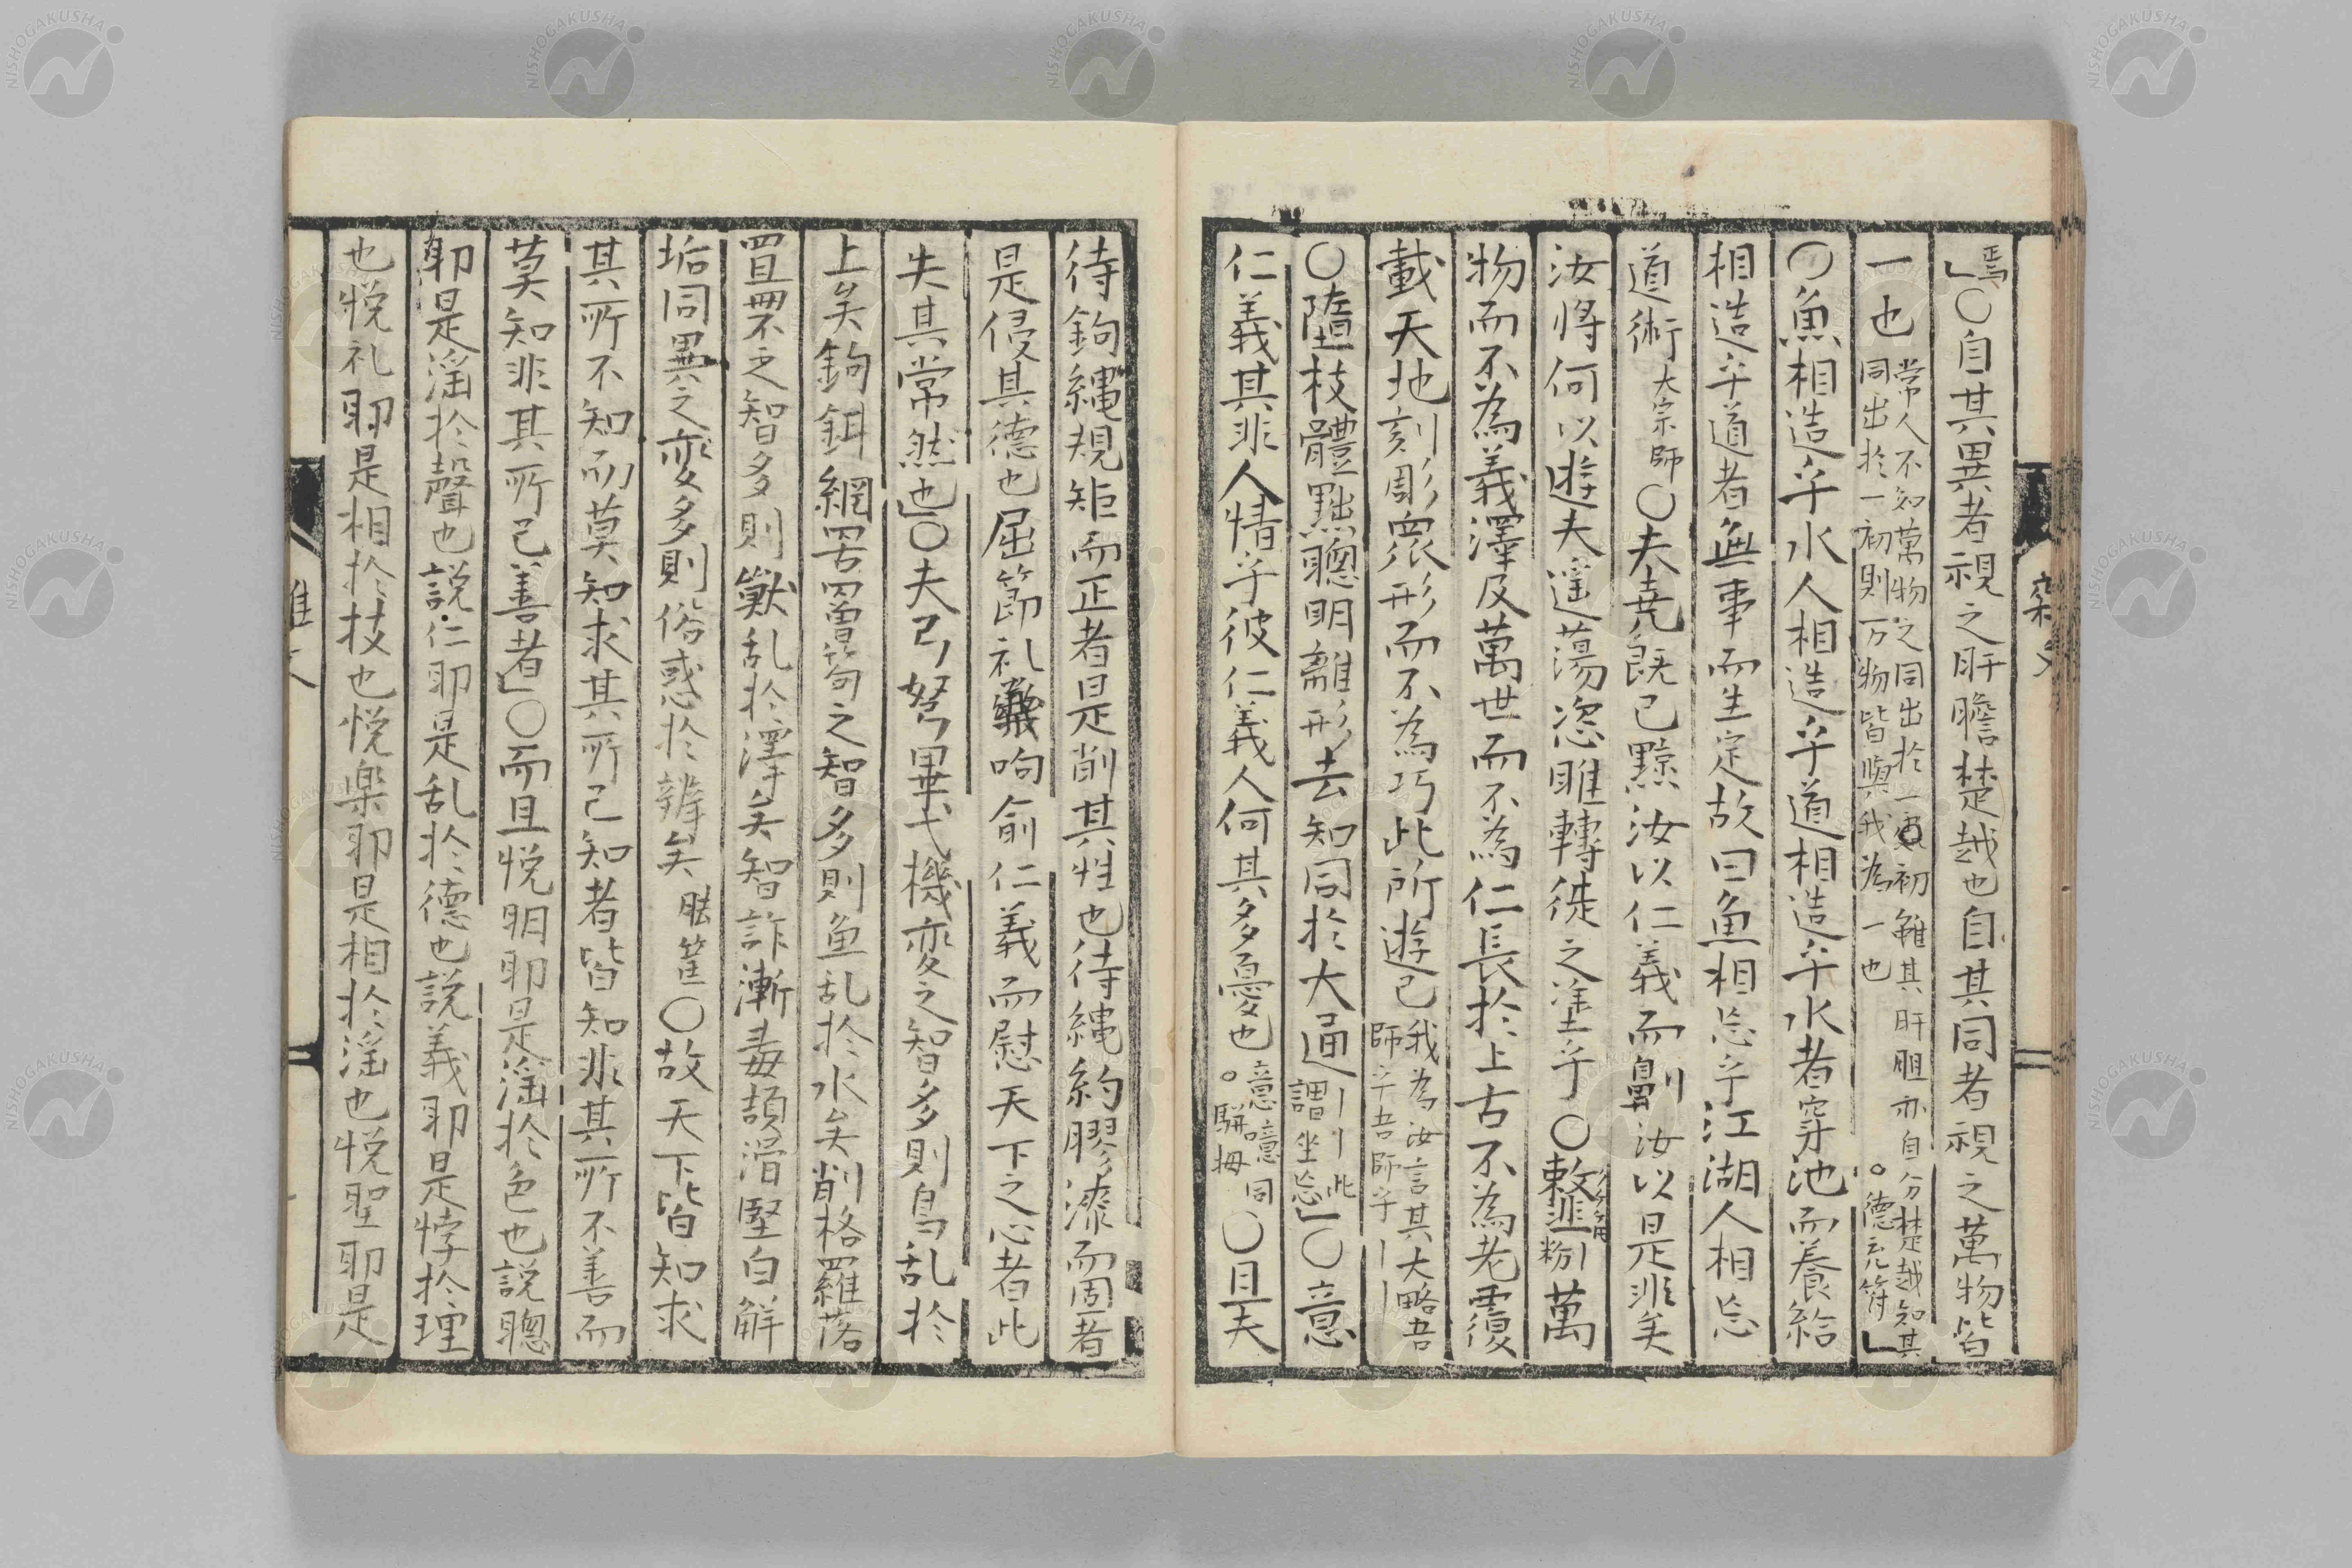 焉」○自其異者視之肝膽楚越也自其同者視之萬物皆
一也常人不知萬物之同出於一初雖其肝胆亦自分楚越知其
同出於一初則万物皆與我為一也。德充符」
○魚相造乎水人相造乎道相造乎水者穿池而養給
相造乎道者無事而生定故曰魚相忘乎江湖人相忘
道術大宗師○夫堯既已黥汝以仁義而劓汝以是非矣
汝將何以遊夫遥蕩恣睢轉徙之塗乎○𩐎粉萬
物而不為義澤及萬世而不為仁長於上古不為老覆
載天地刻彫衆形而不為巧此所遊已我為汝言其大略吾
師乎吾師乎
○墮枝體黜聰明離形去知同於大通此
謂坐忘」○意
仁義其非人情乎彼仁義人何其多憂也意噫同
。駢拇○且夫
待鉤縄規矩而正者是削其性也待縄約膠漆而固者
是侵其德也屈節礼義呴俞仁義而慰天下之心者此
失其常然也」○夫弓弩畢弋機変之智多則鳥乱於
上矣鉤餌網罟罾笱之智多則魚乱於水矣削格羅落
罝罘之智多則獣乱於澤矣智詐漸毒頡滑堅白觧
垢同異之変多則俗惑於辨矣胠篋○故天下皆知求
其所不知而莫知求其所已知者皆知非其所不善而
莫知非其所已善者」○而且悦明耶是淫於色也説聰
耶是淫於聲也説仁耶是乱於德也説義耶是悖於理
也悦礼耶是相於技也悦楽耶是相於淫也悦聖耶是
雜文